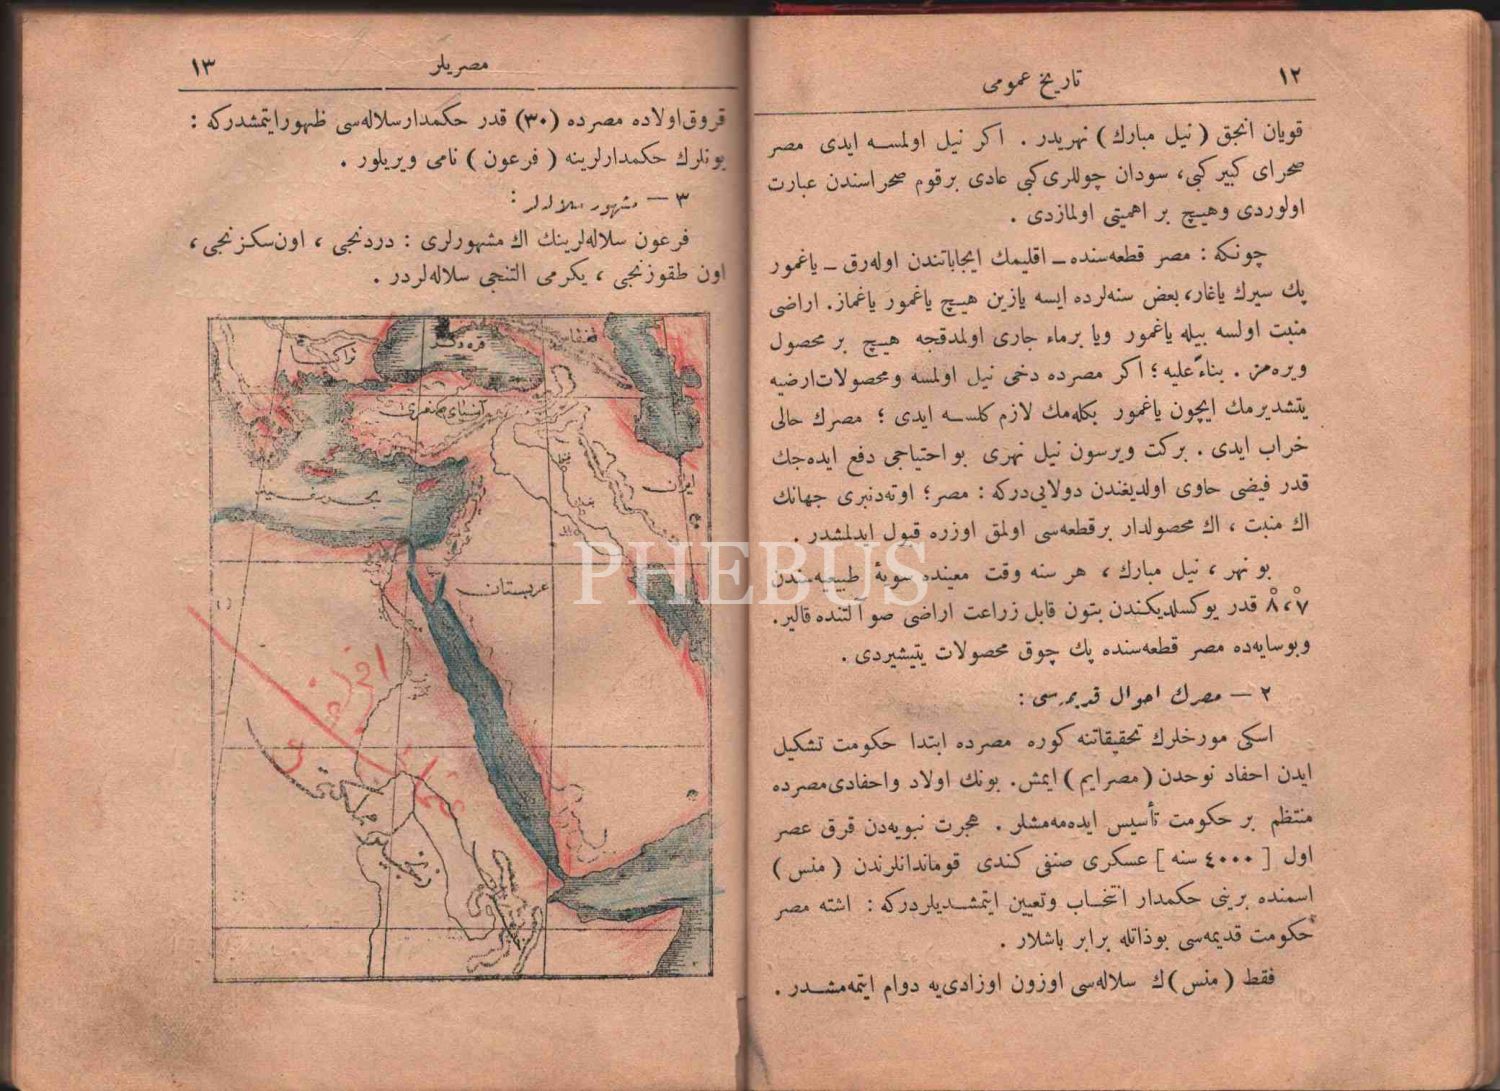 ١٢
تاريخ عمومى
قويان انجق (نيل مبارك) نهريدر. اكر نيل اولمسه ايدى مصر
صحراى كبير كبى، سودان چوللرى كبى عادى برقوم صحراسندن عبارت
اولوردى وهيچ بر اهميتى اولمازدى.
چونكه: مصر قطعه‌سنده ــ اقليمك ايجاباتندن اوله‌رق ــ ياغمور
پك سيرك ياغار، بعض سنه‌لرده ايسه يازين هيچ ياغمور ياغماز. اراضى
منبت اولسه بيله ياغمور ويا برماء جارى اولمدقجه هيچ بر محصول
ويره‌مز. بناءً عليه؛ اكر مصرده دخى نيل اولمسه ومحصولات ارضيه
يتشديرمك ايچون ياغمور بكله‌مك لازم كلسه ايدى؛ مصرك حالى
خراب ايدى. بركت ويرسون نيل نهرى بو احتياجى دفع ايده‌جك
قدر فيضى حاوى اولديغندن دولايى‌دركه: مصر؛ اوته‌دنبرى جهانك
اك منبت، اك محصولدار برقطعه‌سى اولمق اوزره قبول ايدلمشدر.
بو نهر، نيل مبارك، هر سنه وقت معيننده سويهٔ طبيعيه‌سندن
٧،٨ قدر يوكسلديكندن بتون قابل زراعت اراضى صو آلتنده قالير.
وبوسايه‌ده مصر قطعه‌سنده پك چوق محصولات يتيشيردى.
٢ — مصرك احوال قديمه‌سى:
اسكى مورخلرك تحقيقاتنه كوره مصرده ابتدا حكومت تشكيل
ايدن احفاد نوحدن (مصرايم) ايمش. بونك اولاد واحفادى مصرده
منتظم بر حكومت تأسيس ايده‌مه‌مشلر. هجرت نبويه‌دن قرق عصر
اول [٤٠٠٠ سنه] عسكرى صنفى كندى قوماندانلرندن (منس)
اسمنده برينى حكمدار انتخاب وتعيين ايتمشديلردركه: اشته مصر
حكومت قديمه‌سى بوذاتله برابر باشلار.
فقط (منس)ك سلاله‌سى اوزون اوزادى‌يه دوام ايتمه‌مشدر.
١٣
مصريلر
قروق اولاده مصرده (٣٠) قدر حكمدار سلاله‌سى ظهور ايتمشدركه:
بونلرك حكمدارلرينه (فرعون) نامى ويريلور.
٣ — مشهور سلاله‌لر:
فرعون سلاله‌لرينك اك مشهورلرى: دردنجى، اون سكزنجى،
اون طقوزنجى، يكرمى التنجى سلاله‌لردر.
قره دكز
قفقاس
تراكيا
آسياى صغرى
بحر سفيد
ايران
عربستان
PHEBUS